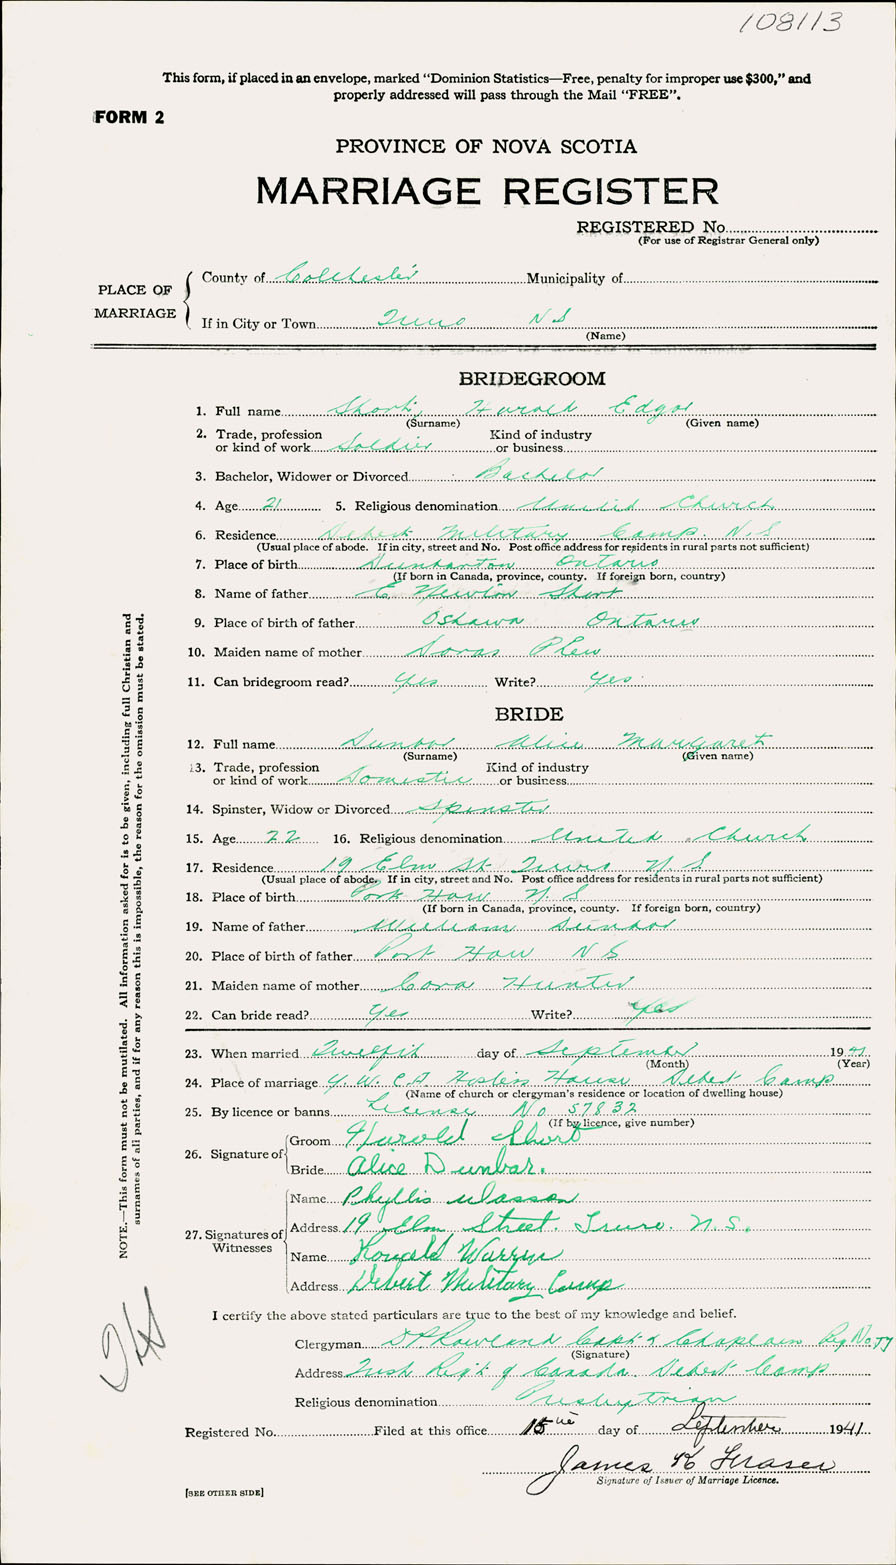 108113
This form, if placed in an envelope, marked "Dominion Statistics—Free, penalty for improper use $300," and
properly addressed will pass through the Mail "FREE".
FORM 2
PROVINCE OF NOVA SCOTIA
MARRIAGE REGISTER
REGISTERED No.
(For use of Registrar General only)
PLACE OF MARRIAGE
County of Colchester Municipality of
If in City or Town Truro N S
(Name)
BRIDEGROOM
1. Full name Short, Harold Edgar
(Surname) (Given name)
2. Trade, profession or kind of work Soldier Kind of industry or business
3. Bachelor, Widower or Divorced Bachelor
4. Age 21 5. Religious denomination United Church
6. Residence Debert Military Camp. N.S
(Usual place of abode. If in city, street and No. Post office address for residents in rural parts not sufficient)
7. Place of birth Dunbarton Ontario
(If born in Canada, province, county. If foreign born, country)
8. Name of father E Newton Short
9. Place of birth of father Oshawa Ontario
10. Maiden name of mother Plew
11. Can bridegroom read? Yes Write? Yes
BRIDE
12. Full name Dunbar Alice Margaret
(Surname) (Given name)
13. Trade, profession or kind of work Domestic Kind of industry or business
14. Spinster, Widow or Divorced Spinster
15. Age 22 16. Religious denomination United Church
17. Residence 19 Elm St Truro N.S
(Usual place of abode. If in city, street and No. Post office address for residents in rural parts not sufficient)
18. Place of birth Port How N. S
(If born in Canada, province, county. If foreign born, country)
19. Name of father William Dunbar
20. Place of birth of father Port How N S
21. Maiden name of mother Cora Hunter
22. Can bride read? Yes Write? Yes
23. When married Twelfth day of September 1941
(Month) (Year)
24. Place of marriage Y. W. C. A Hostess House Debert Camp
(Name of church or clergyman's residence or location of dwelling house)
25. By licence or banns License No 57832
(If by licence, give number)
26. Signature of
Groom Harold Short
Bride Alice Dunbar.
27. Signatures of Witnesses
Name Phyllis Wasson
Address 19 Elm Street. Truro. N.S.
Name Ronald
Address Debert Military Camp
I certify the above stated particulars are true to the best of my knowledge and belief.
Clergyman Rowland Capt & Chaplain Reg No
(Signature)
Address Irish Reg't of Canada. Debert Camp
Religious denomination Presbytrian
Registered No. Filed at this office 15 day of September 1941
James K Fraser
Signature of Issuer of Marriage Licence.
[SEE OTHER SIDE]
NOTE.—This form must not be mutilated. All information asked for is to be given, including full Christian and
surnames of all parties, and if for any reason this is impossible, the reason for the omission must be stated.